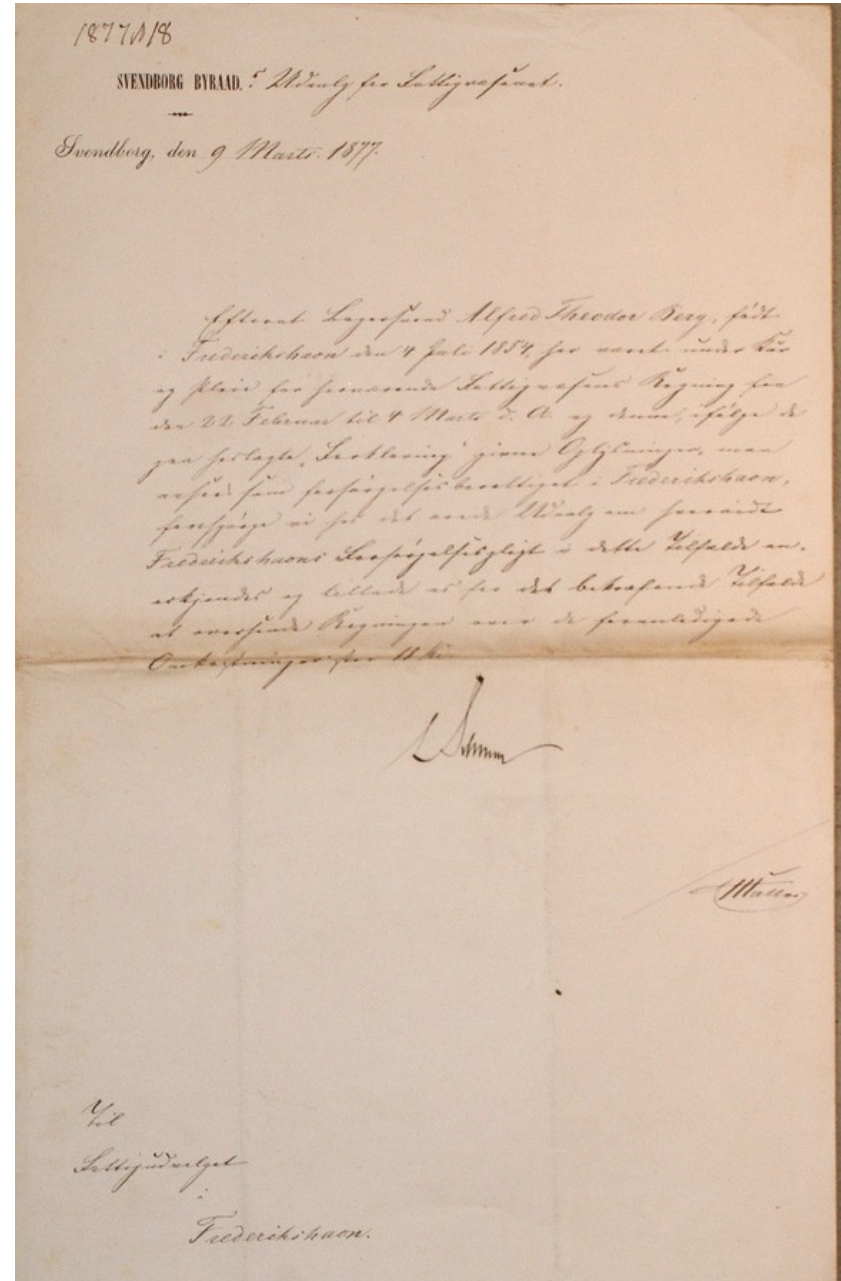 1877 N 18
SVENDBORG BYRAAD.s Udvalg for Fattigvæsenet.
Svendborg, den 9 Marts 1877.
Efterat Bagersvend Alfred Theodor Berg, født
i Frederikshavn den 4 Juli 1854, har været under Kur
og Pleie for herværende Fattigvæsens Regning fra
den 22 Februar til 4 Marts d. A. og denne, ifølge de
paa hoslagte "Forklaring" givne Oplysninger, maa
ansees som forsørgelsesberettiget i Frederikshavn,
forespørge vi hos det ærede Udvalg om hvorvidt
Frederikshavns Forsørgelsespligt i dette Tilfælde an-
erkjendes og tillade os for det bekræftende Tilfælde
at oversende Regningen over de foranledigede
Omkostninger stor 11 Kr.
Møller
Til
Fattigudvalget
i
Frederikshavn.